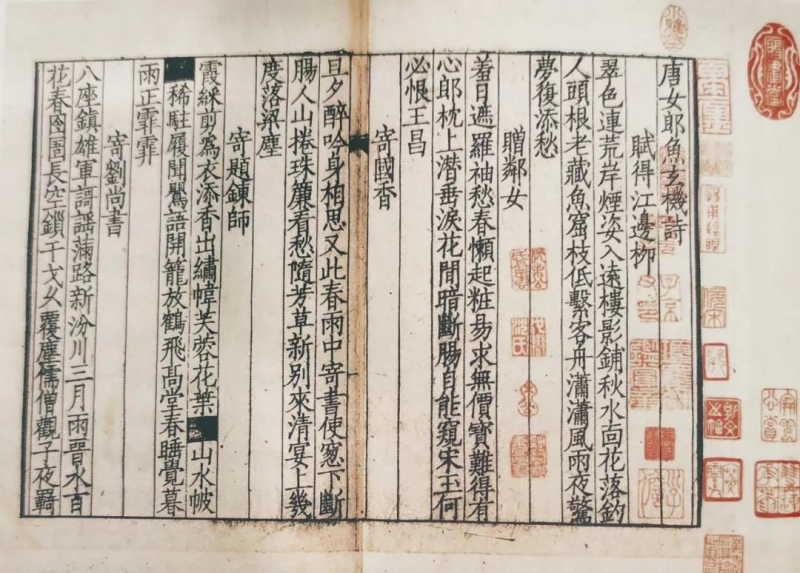 唐女郎魚玄機詩
賦得江邊柳
翠色連荒岸煙姿入遠樓影鋪秋水面花落釣
人頭根老藏魚窟枝低繫客舟瀟瀟風雨夜驚
夢復添愁
贈鄰女
羞日遮羅袖愁春懶起粧易求無價寶難得有
心郎枕上潜垂淚花間暗斷腸自能窺宋玉何
必恨王昌
寄國香
旦夕醉吟身相思又此春雨中寄書使窓下斷
腸人山捲珠簾看愁隨芳草新別來清宴上幾
度落梁塵
寄題鍊師
霞綵剪爲衣添香出繡幃芙蓉花葉山水帔
稀駐履聞鸎語開籠放鶴飛高堂春睡覺暮
雨正霏霏
寄劉尚書
八座鎮雄軍謌謡滿路新汾川三月雨晉水百
花春囹圄長空鎖干戈久覆塵儒僧觀子夜羇